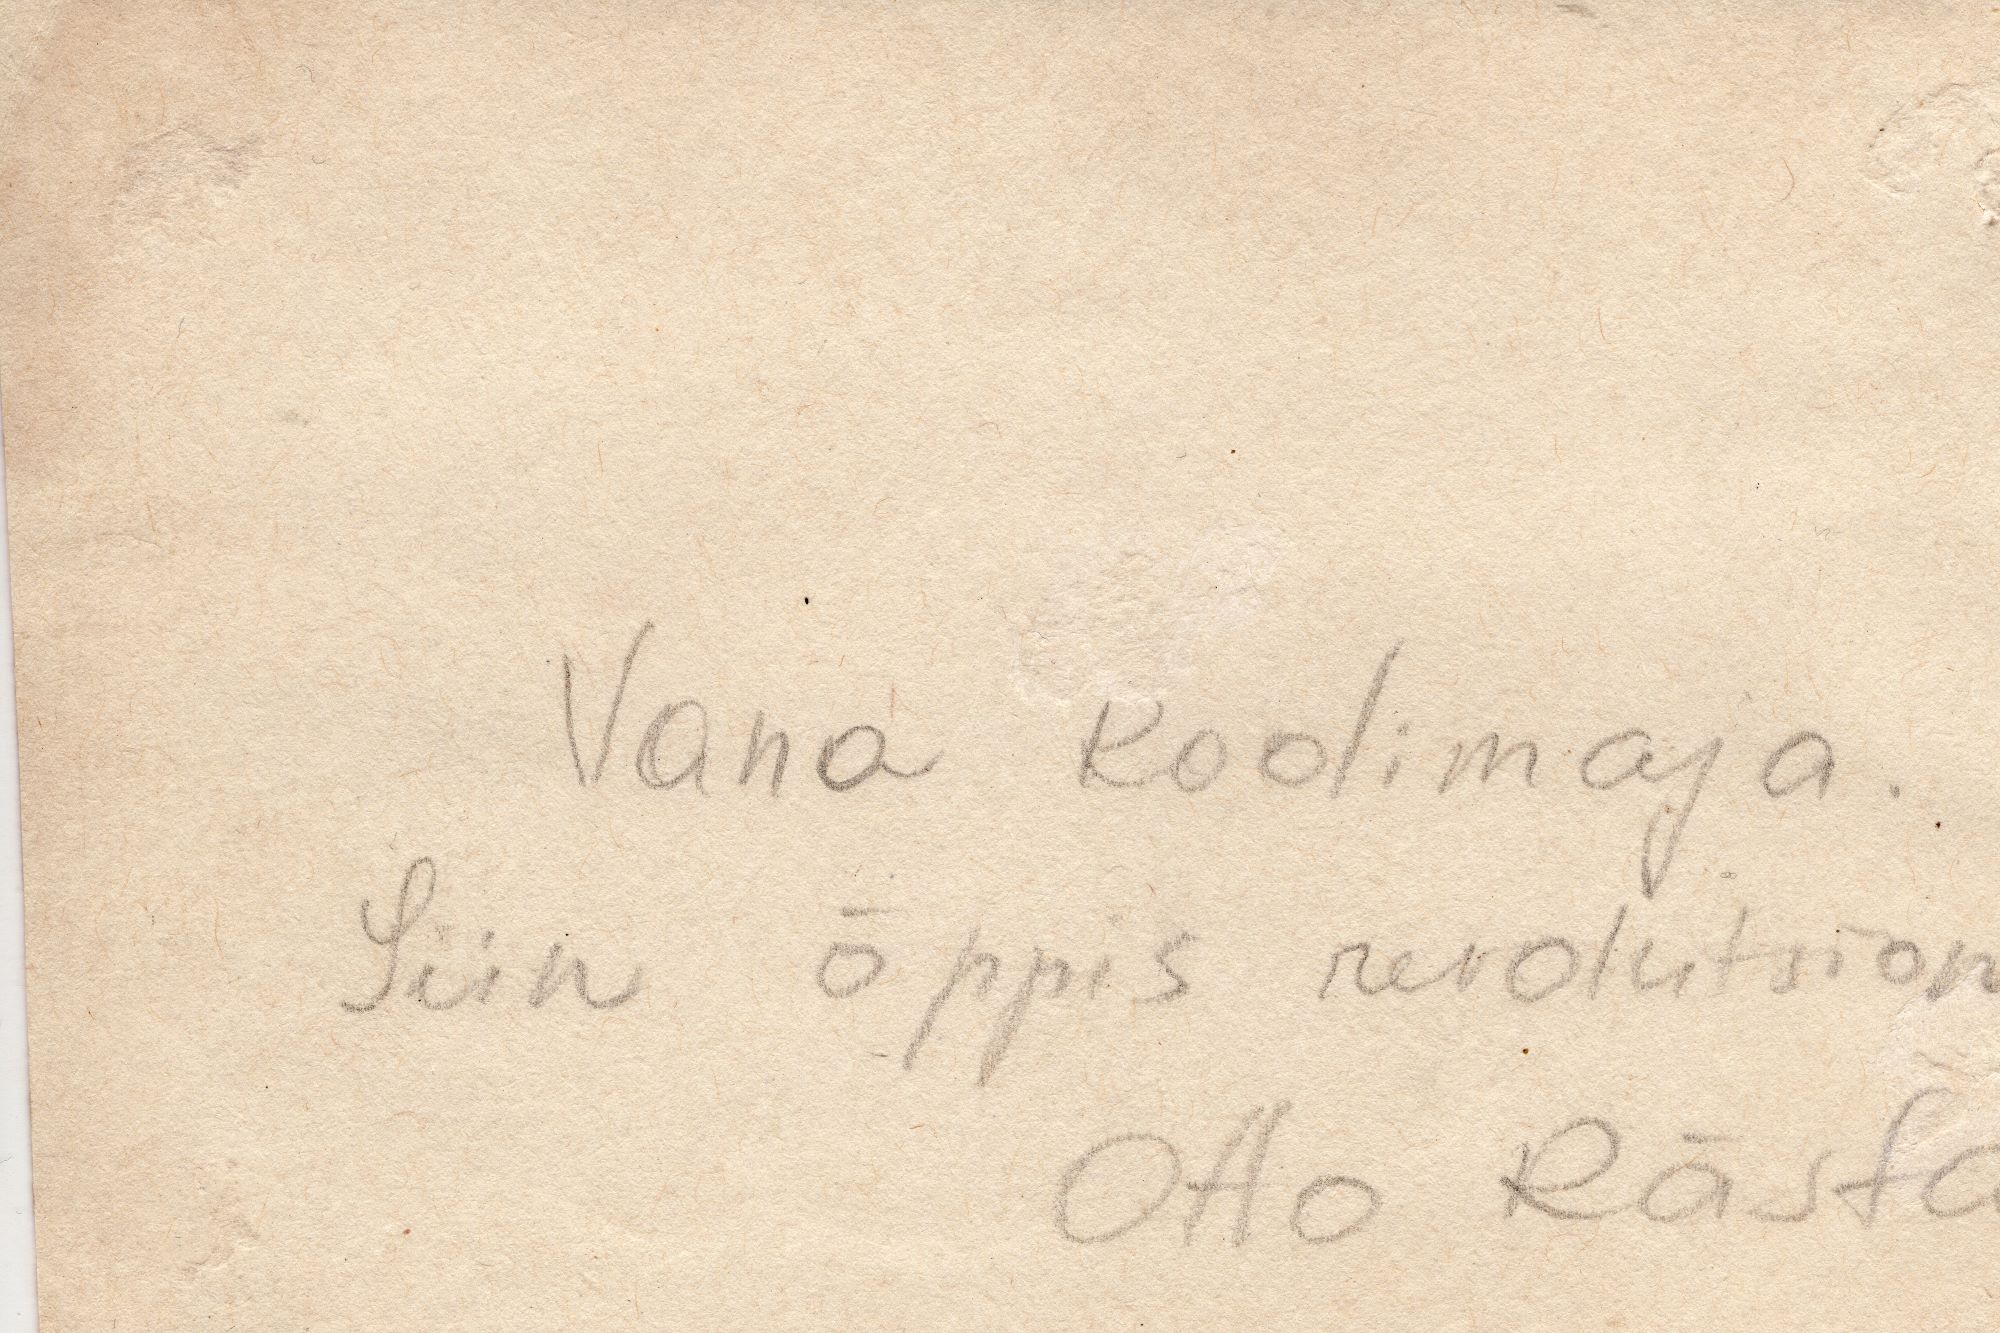 Vana koolimaja.
Siin õppis revolutsion
Otto Rästa